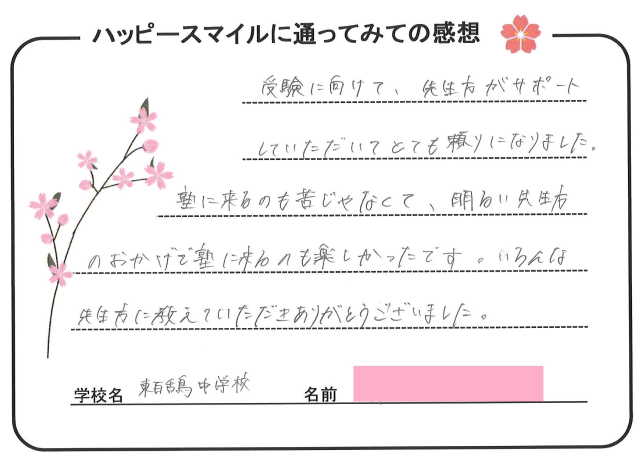 ハッピースマイルに通ってみての感想
受験に向けて、先生方がサポート
していただいてとても頼りになりました。
塾に来るのも苦じゃなくて、明るい先生方
のおかげで塾に来るのも楽しかったです。いろんな
先生方に教えていただきありがとうございました。
学校名 東百舌鳥中学校 名前